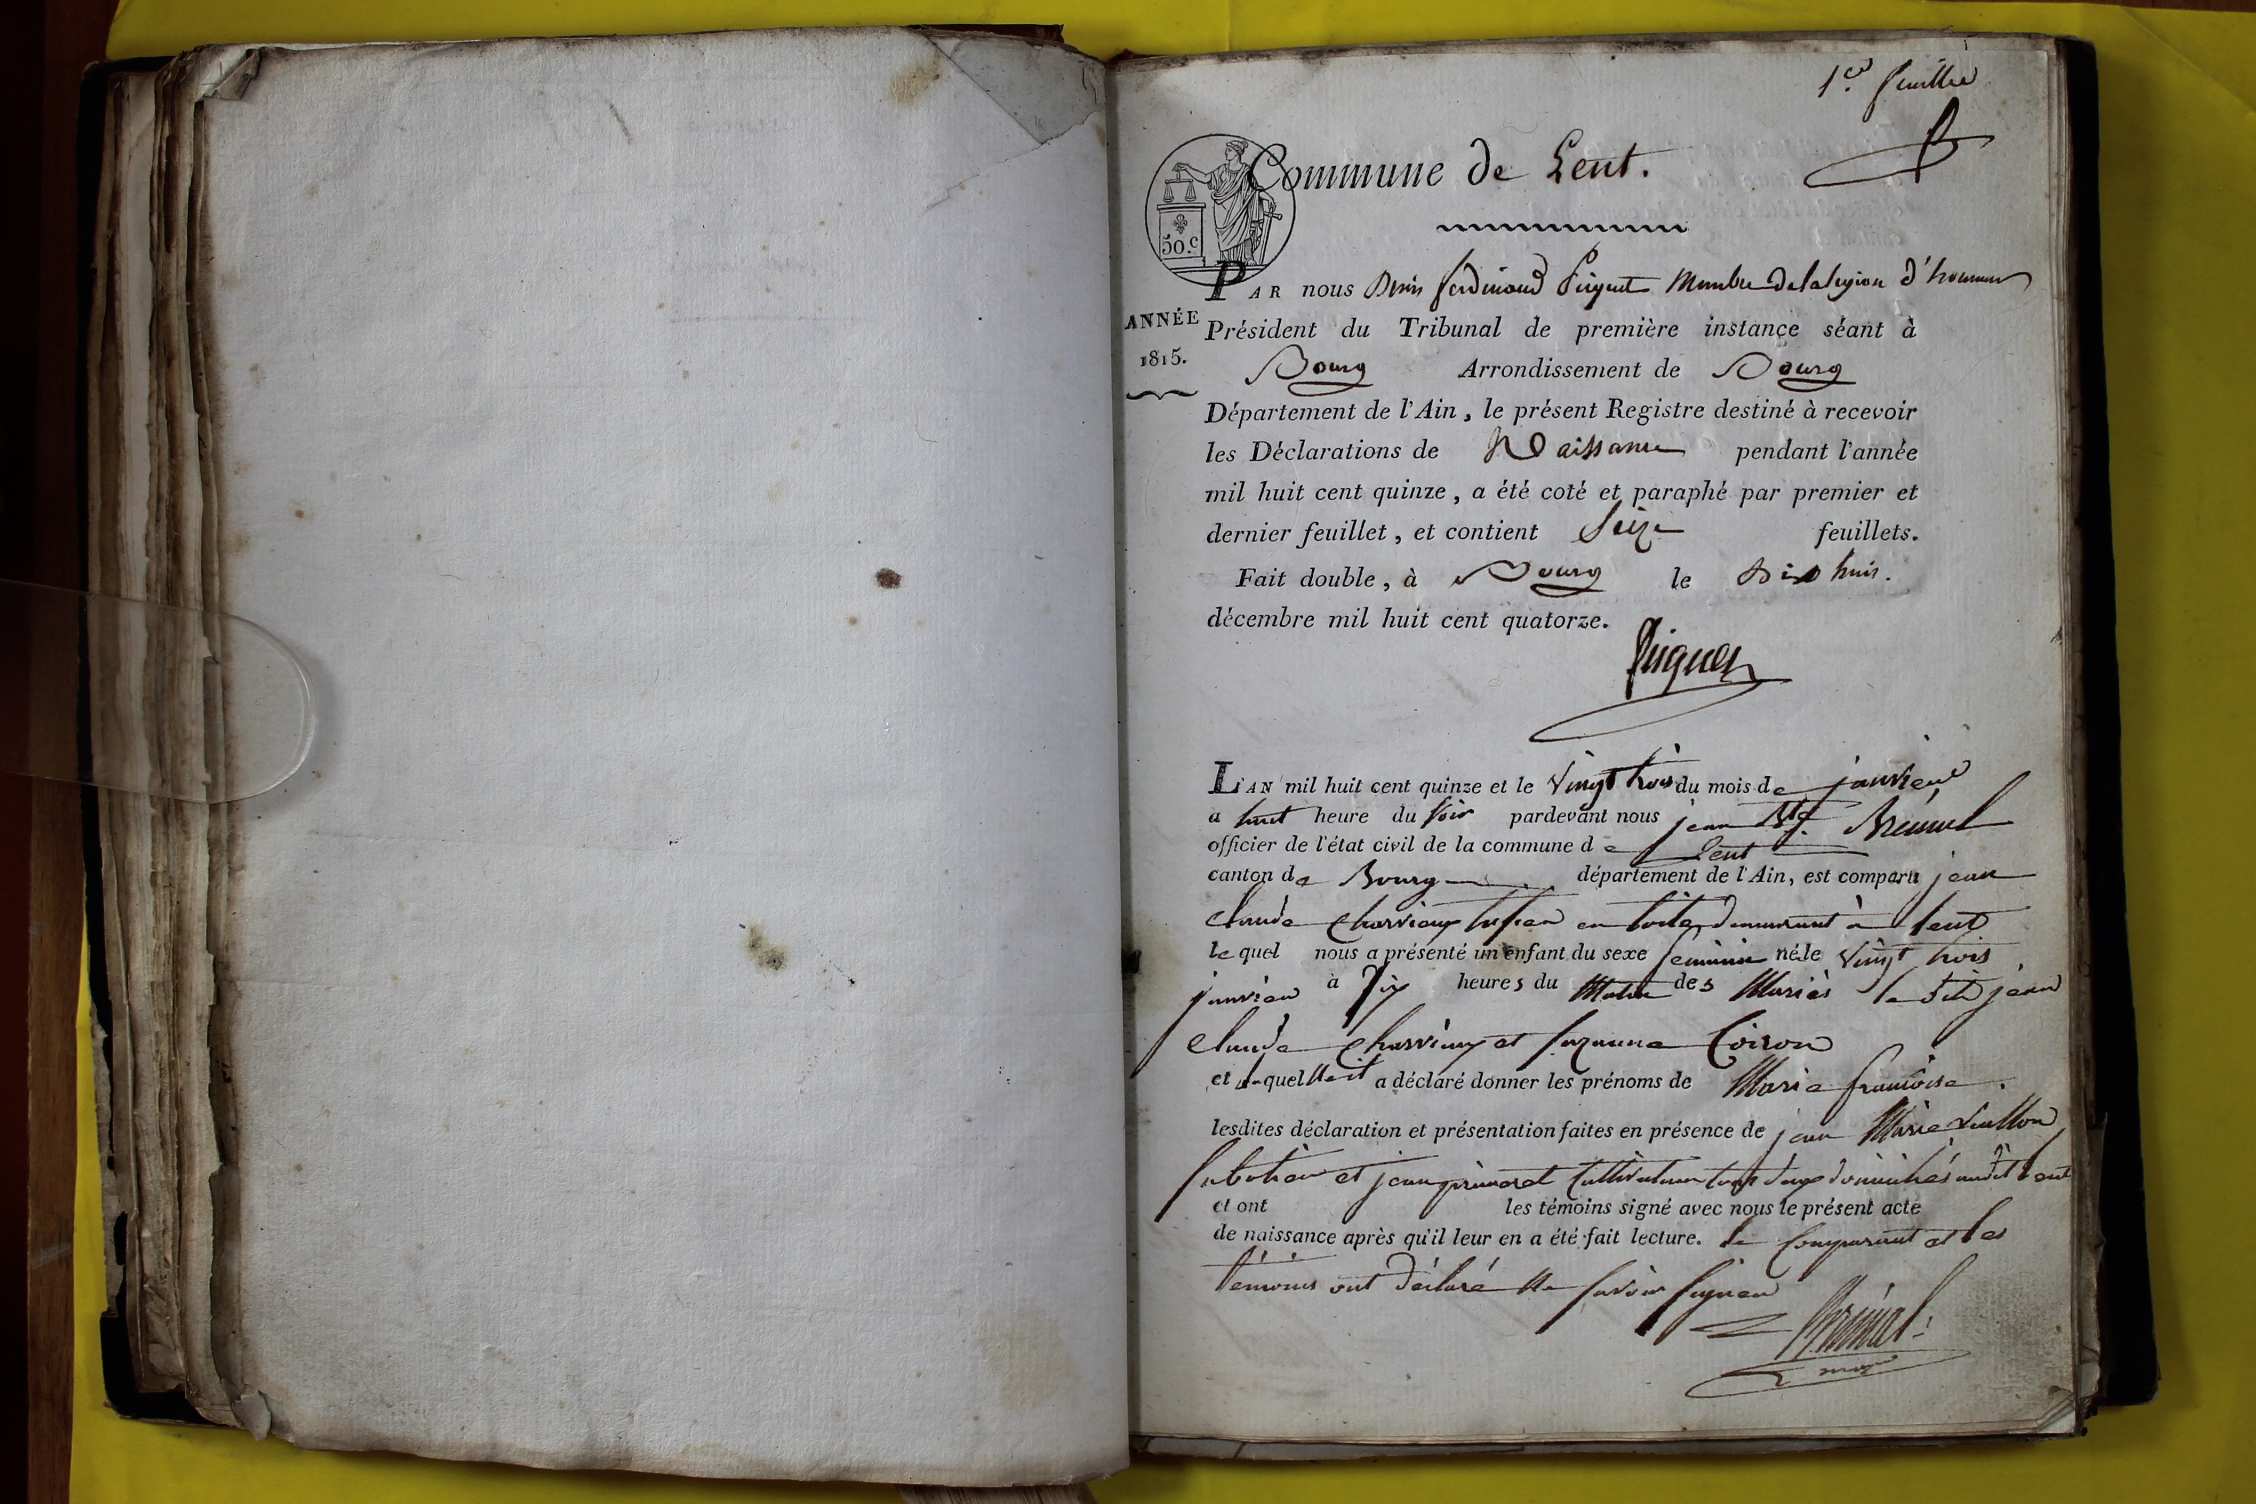 1er feuillet
Commune de Lent.
50.c
PAR nous Denis ferdinand Piquet Membre de la legion d'honneur
ANNÉE
1815.
Président du Tribunal de première instance séant à
Bourg Arrondissement de Bourg
Département de l'Ain, le présent Registre destiné à recevoir
les Déclarations de Naissance pendant l'année
mil huit cent quinze, a été coté et paraphé par premier et
dernier feuillet, et contient Seize feuillets.
Fait double, à Bourg le Dix huit.
décembre mil huit cent quatorze.
L'AN mil huit cent quinze et le vingt trois du mois de janvier
a huit heure du soir pardevant nous jean Bte
officier de l'état civil de la commune de Lent
canton de Bourg département de l'Ain, est comparu jean
claude en toile demeurant à lent
lequel nous a présenté un enfant du sexe feminin né le vingt trois
janvier à dix heures du Matin des Mariés le dit jean
claude et suzanne Coiron
et lequel a déclaré donner les prénoms de Marie françoise.
lesdites déclaration et présentation faites en présence de jean Marie
sabotier et jean Cultivateur tous deux domiciliés audit Lent
et ont les témoins signé avec nous le présent acte
de naissance après qu'il leur en a été fait lecture. le Comparant et les
témoins ont déclaré ne savoir signer